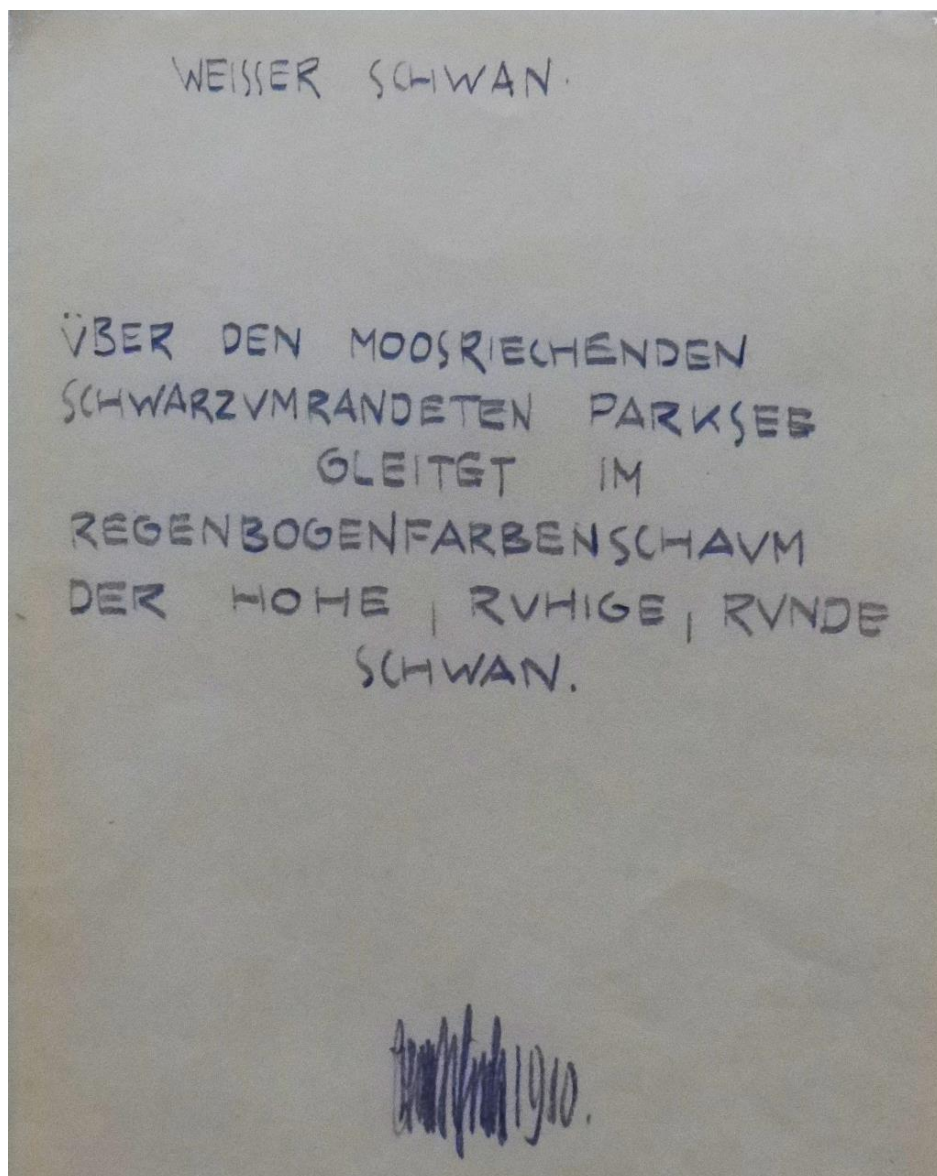 WEISSER SCHWAN.
ÜBER DEN MOOSRIECHENDEN
SCHWARZVMRANDETEN PARKSEE
GLEITET IM
REGENBOGENFARBENSCHAVM
DER HOHE, RVHIGE, RVNDE
SCHWAN.
1910.